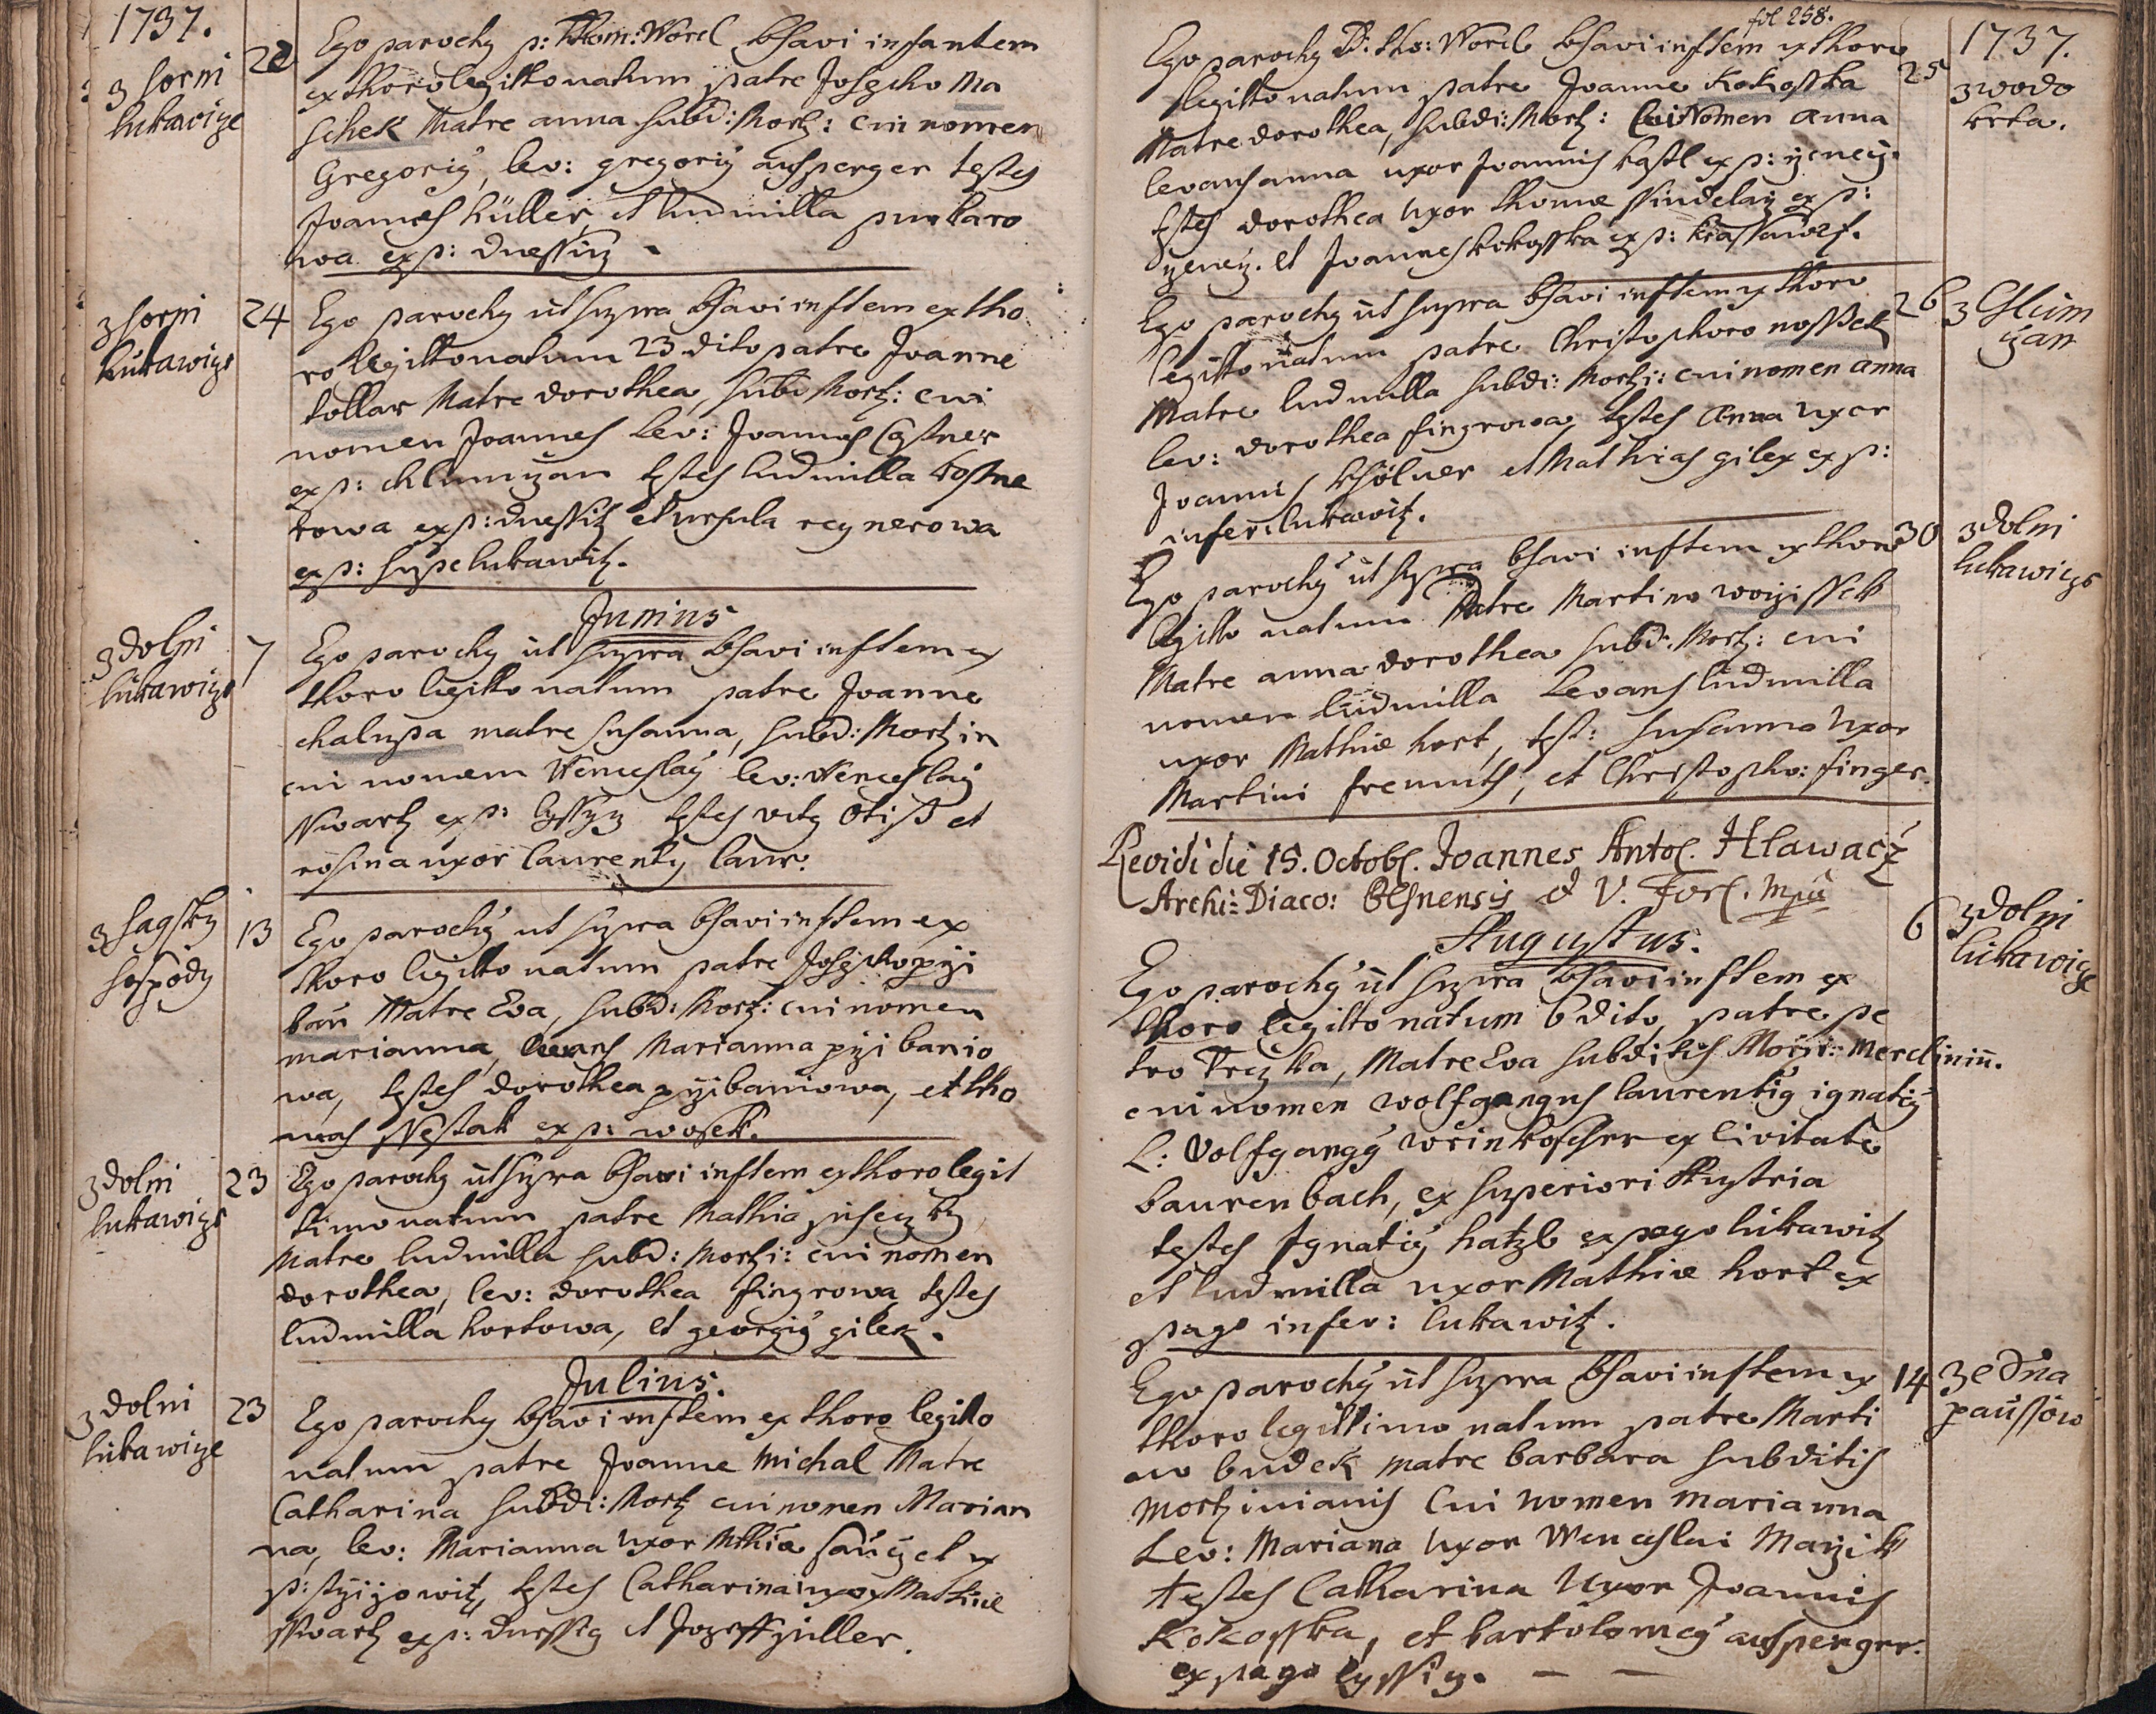 1737.
z horni
Lukawize
22
Ego parochy p: Thom: Worel bsavi infantem
ex thoro legitto natum patre Josepho Ma
schek Matre anna subd: Mertz: cui nomen
Gregoriy, lev: gregoriy ausperger testes
Joannes hüller, et ludmilla purkaro
wa ex p: dnessiz.
z horni
Lukawize
24
Ego parochy ut supra bsavi inftem ex tho
ro legitto natum 23 dito patre Joanne
kollar Matre dorothea, subd Mertz: cui
nomen Joannes Lev: Joannes Castner
ex p: chlumizan testes ludmilla kostne
rowa ex p: dnessitz et ursula reynerowa
ex p: supe lukawitz.
Junius
z dolni
lukawize
7
Ego parochy ut supra bsavi inftem ex
thoro legitto natum patre Joanne
chalupa matre susanna, subd: Mertzin
cui nomen Wenceslaÿ lev: Wenceslaÿ
Swartz ex p: lyssyz testes vity Otiß et
rosina uxor laurenty laur.
z hagsky
hospody
13
Ego parochÿ ut supra bsavi inftem ex
thoro legitto natum patre Josepho pÿi
bań Matre Eva, subd: Mertz: cui nomen
marianna, levans Marianna pÿi banio
wa, testes dorothea pÿibaniowa, et tho
mas Sestak ex p: wosek.
z dolni
lukawize
23
Ego parochy ut supra bsavi inftem ex thoro legit
timo natum patre Mathia piseczky
Matre ludmilla subd: Mertzi: cui nomen
dorothea, lev: dorothea fingrowa testes
ludmilla hortowa, et georgiÿ gilek.
Julius.
z dolni
lukawize
23
Ego parochy bsavi inftem ex thoro legitto
natum patre Joanne Michal Matre
Catharina subdi: Mertz cui nomen Marian
na, lev: Marianna uxor Mthiæ
p: testes Catharina uxor Mathiæ
Swartz ex p: dnessig et Jozeff piller.
fol 258.
1737.
Ego parochy D: tho: Worel bsavi inftem ex thoro
25
z wodo
krta.
legitto natum patre Joanne Kokosska
Matre dorothea, subdi: Mertz: Cui Nomen Anna
levans anna uxor Joannis kastl ex p: ÿeneÿ.
testes dorothea uxor thomæ Sindelaÿ ex p:
ÿeneÿ. et Joannes kokosska ex p: krassawez.
Ego parochy ut supra bsavi inftem ex thoro
26
z Chlum
zan
legitto natum patre Christophoro nossek
Matre ludmilla subdi: Mertzi: cui nomen anna
lev: dorothea fingrowa testes Anna uxor
Joannis et Mathias gilex ex p:
infer: lukawitz.
Ego parochÿ ut supra bsavi inftem ex thoro
30
z dolni
lukawize
legitto natum Patre Martino woÿissek
Matre anna dorothea subd: Mertz: cui
nomen ludmilla Levans ludmilla
uxor Mathiæ hort, test: susanna uxor
Martini freunth, et Christopho: finger.
Revidi die 15. Octobr. Joannes Antoi. Hlawacž
Archi: Diaco: Plsnensis et V. For. Mpia
Augustus.
6
z dolni
lukawize
Ego parochÿ ut supra bsavi inftem ex
thoro legitto natum 6 dito, patre pe
tro Treska, Matre Eva subditis Mertzi: Merclinin.
cui nomen wolfgangus laurentiÿ ignatiÿ
L: Volfgangÿ ex Civitate
baurenbach, ex superiori Austria
testes Ignatiÿ hatzl ex pago lukawitz
et ludmilla uxor Mathiæ hort ex
pago infer: lukawitz.
14
z edna
paussow
Ego parochÿ ut supra bsavi inftem ex
thoro legittimo natum patre Marti
no budek matre barbara subditis
Mertzinianis Cui nomen marianna
Lev: Mariana uxor Wenceslai Maÿik
testes Catharina Uxor Joannis
Kokosska, et bartolomeÿ ausperger.
ex pago lyssiz.